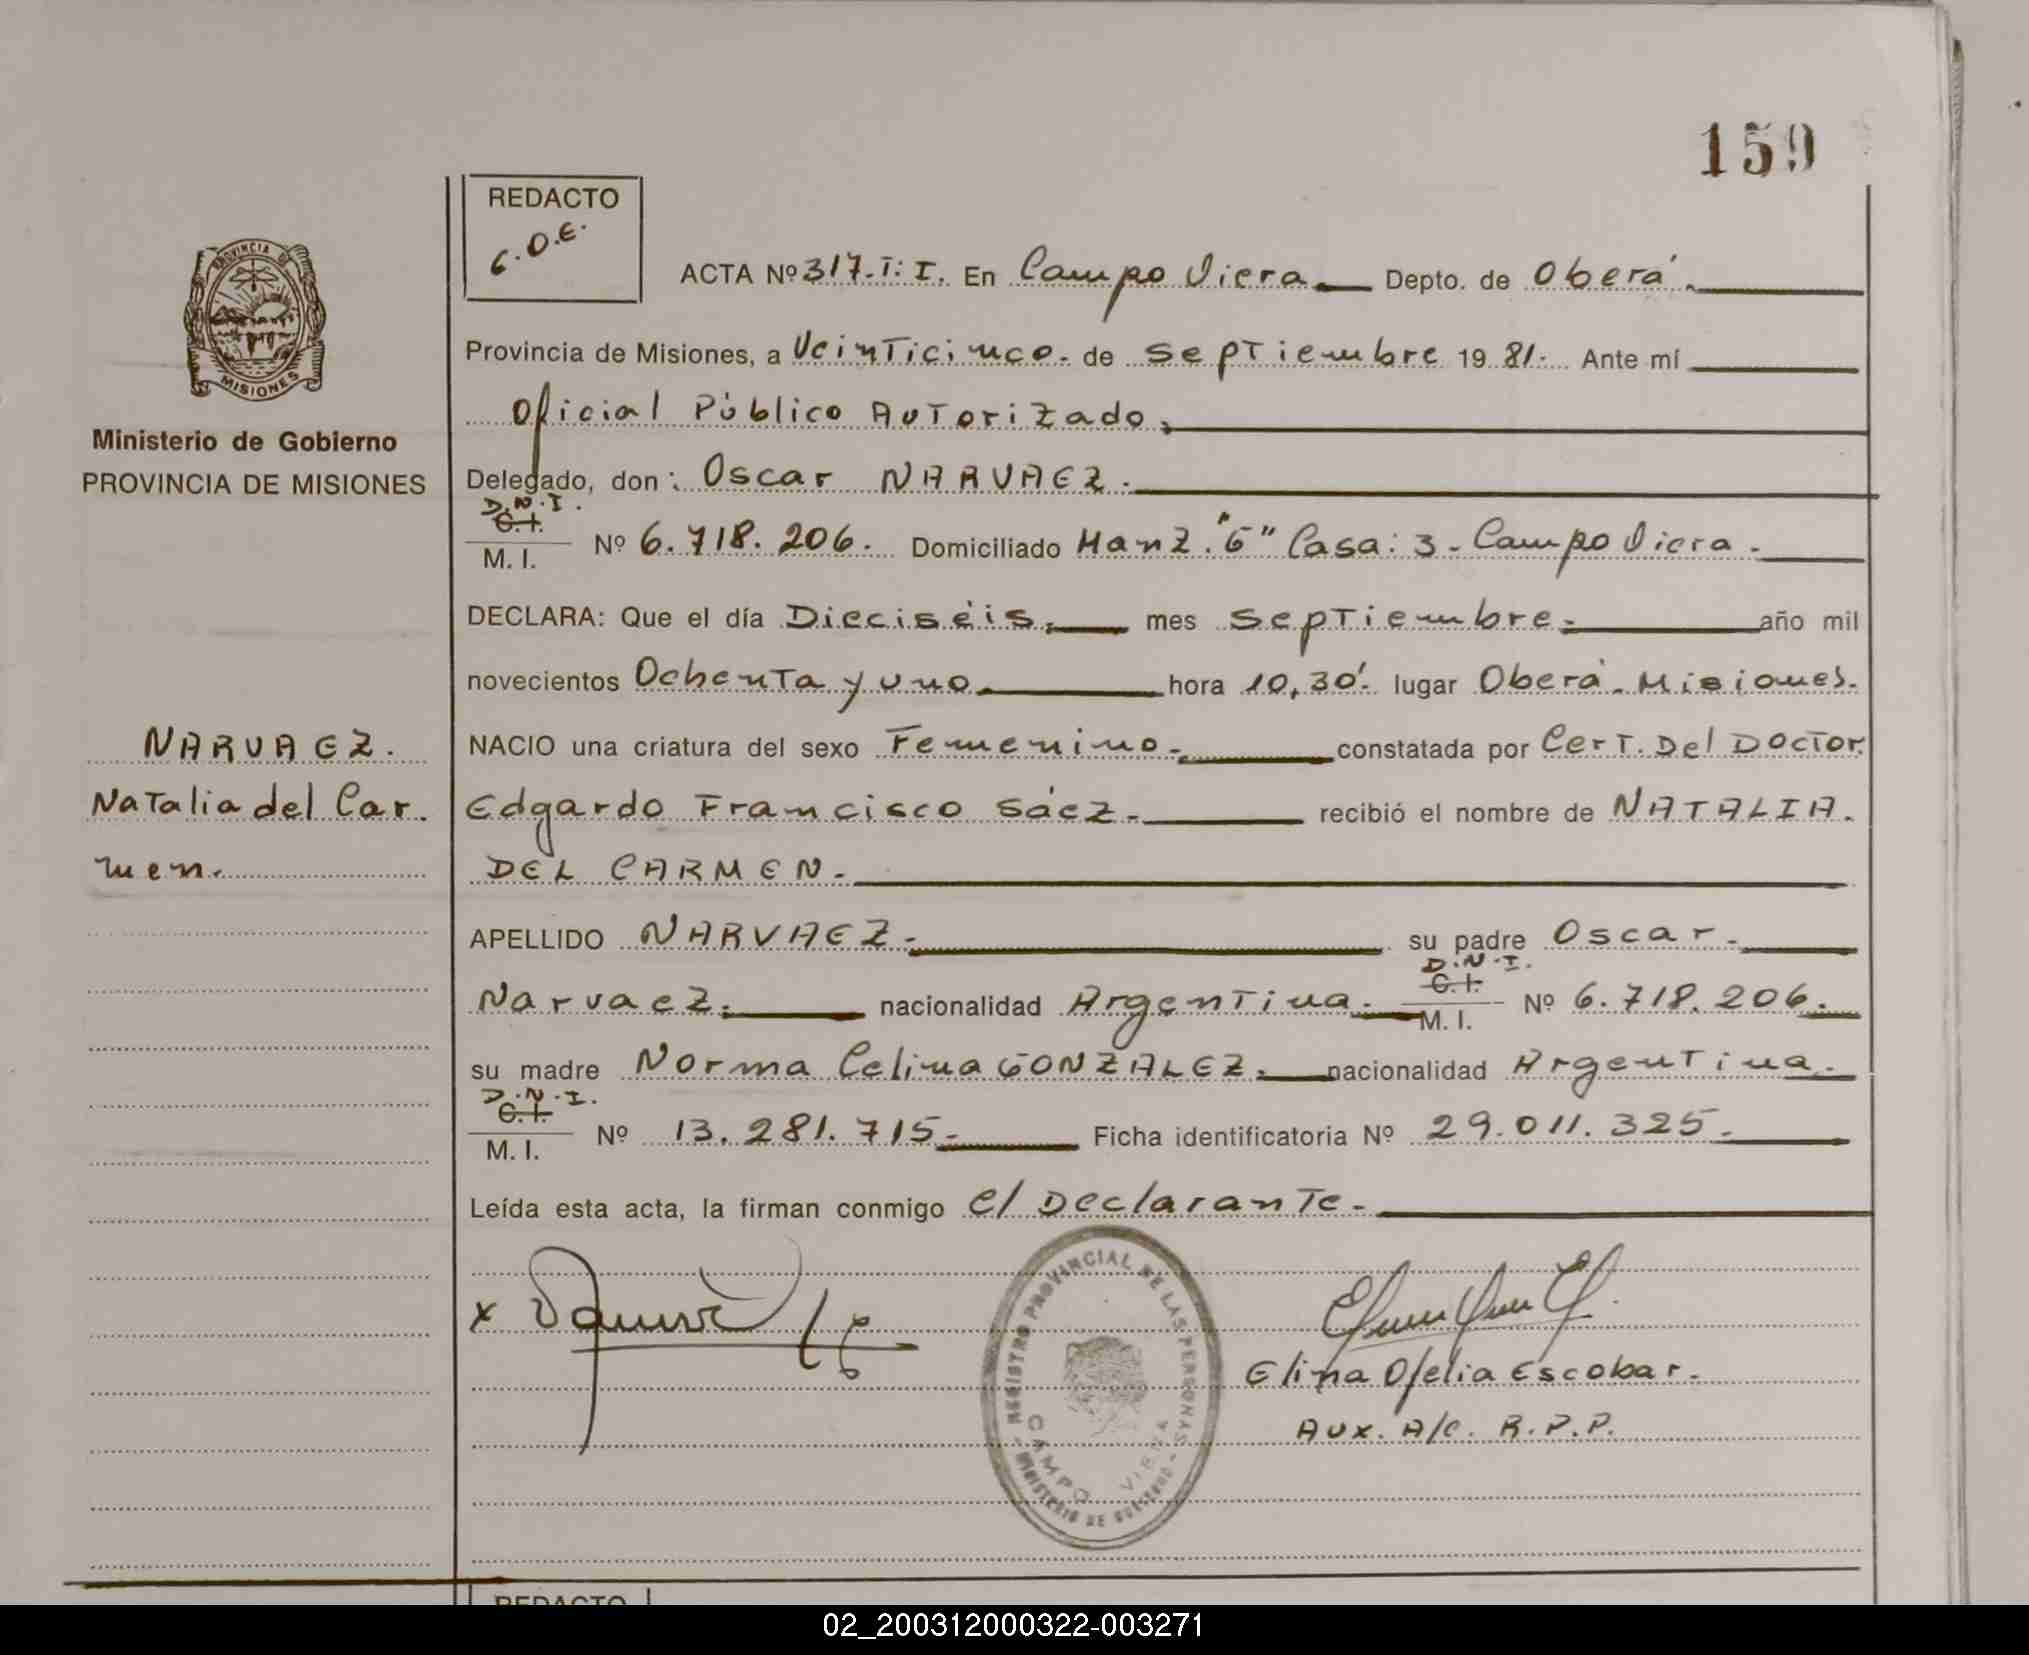 159
REDACTO
ACTA Nº 317. I: I. En Campo Viera Depto. de Oberá.
Provincia de Misiones, a Veinticinco. de Septiembre 19 81. Ante mí
Oficial Público Autorizado,
Ministerio de Gobierno
PROVINCIA DE MISIONES
Delegado, don: Oscar NARVAEZ.
D.N.I.
C.I.
M. I. Nº 6.718.206. Domiciliado Manz. "G" Casa: 3. Campo Viera.
DECLARA: Que el día Dieciséis, mes Septiembre. año mil
novecientos Ochenta y uno hora 10,30'. lugar Oberá. Misiones.
NACIO una criatura del sexo Femenino. constatada por Cert. Del Doctor.
Edgardo Francisco Sáez. recibió el nombre de NATALIA.
DEL CARMEN.
NARVAEZ.
Natalia del Car.
men.
APELLIDO NARVAEZ. su padre Oscar.
Narvaez. nacionalidad Argentina. D.N.I. C.I. M. I. Nº 6.718.206.
su madre Norma Celina GONZALEZ. nacionalidad Argentina.
D.N.I.
C.I.
M. I. Nº 13.281.715. Ficha identificatoria Nº 29.011.325.
Leída esta acta, la firman conmigo el Declarante.
x
REGISTRO PROVINCIAL DE LAS PERSONAS
CAMPO VIERA
MINISTERIO DE GOBIERNO
Elina Ofelia Escobar.
Aux. A/C. R.P.P.
REDACTO
02_200312000322-003271